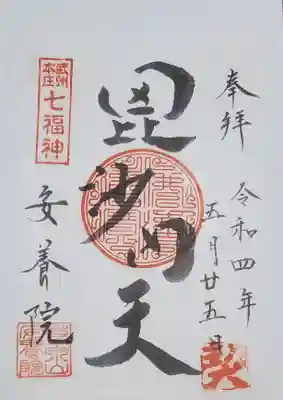 奉拝
令和四年
五月廿五日
毘沙门天
武州
本庄
七福神
安養院